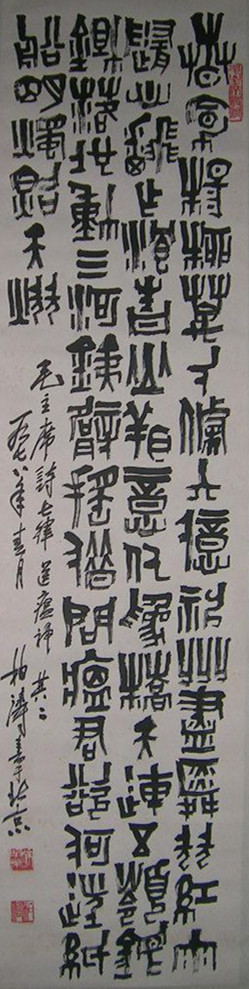 春風楊柳萬千條六億神州盡舜堯紅雨
隨心翻作浪青山着意化為橋天連五嶺銀
鋤落地動三河鐵臂搖借問瘟君欲何往紙
船明燭照天燒
毛主席詩七律送瘟神 其二
一九七八年春月 書于北京